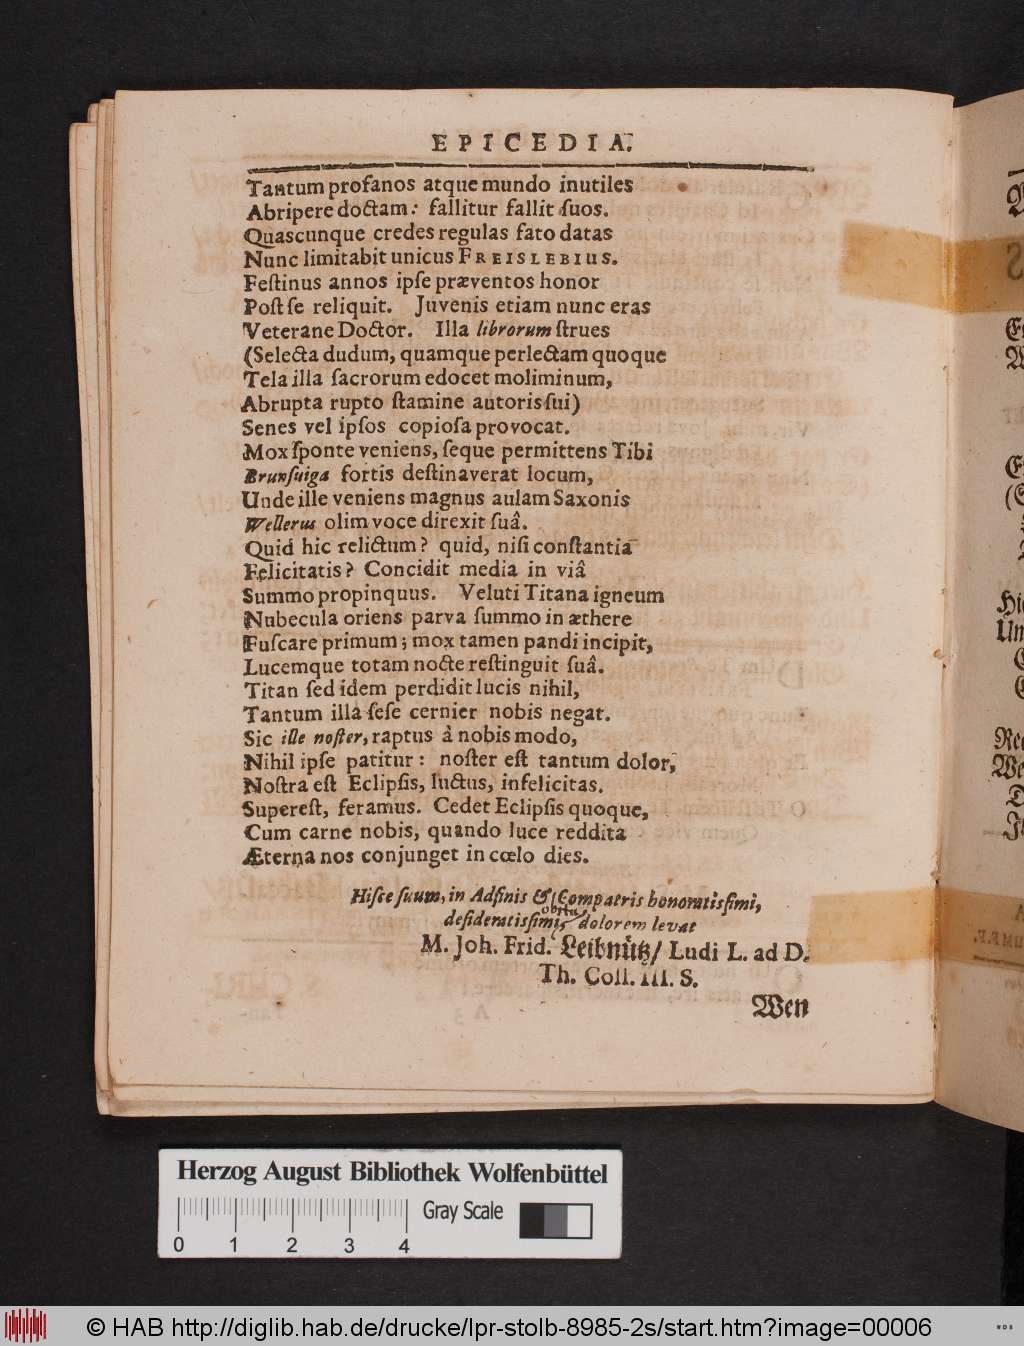 EPICEDIA.
Tantum profanos atque mundo inutiles
Abripere doctam: fallitur fallit ſuos.
Quascunque credes regulas fato datas
Nunc limitabit unicus FREISLEBIUS.
Feſtinus annos ipſe præventos honor
Poſt ſe reliquit. Juvenis etiam nunc eras
Veterane Doctor. Illa librorum ſtrues
(Selecta dudum, quamque perlectam quoque
Tela illa ſacrorum edocet moliminum,
Abrupta rupto ſtamine autoris ſui)
Senes vel ipſos copioſa provocat.
Mox ſponte veniens, ſeque permittens Tibi
Brunſuiga fortis deſtinaverat locum,
Unde ille veniens magnus aulam Saxonis
Wellerus olim voce direxit ſuâ.
Quid hic relictum? quid, niſi conſtantia
Felicitatis? Concidit media in viâ
Summo propinquus. Veluti Titana igneum
Nubecula oriens parva ſummo in æthere
Fuſcare primum; mox tamen pandi incipit,
Lucemque totam nocte reſtinguit ſuâ.
Titan ſed idem perdidit lucis nihil,
Tantum illa ſeſe cernier nobis negat.
Sic ille noſter, raptus à nobis modo,
Nihil ipſe patitur: noſter eſt tantum dolor,
Noſtra eſt Eclipſis, luctus, infelicitas.
Supereſt, feramus. Cedet Eclipſis quoque,
Cum carne nobis, quando luce reddita
Æterna nos conjunget in cœlo dies.
Hiſce ſuum, in Adfinis & Compatris honoratiſſimi,
obitu
deſideratiſſimi, dolorem levat
M. Joh. Frid. Leibnütz/ Ludi L. ad D.
Th. Coll. III. S.
Wen
Herzog August Bibliothek Wolfenbüttel
Gray Scale
0 1 2 3 4
© HAB http://diglib.hab.de/drucke/lpr-stolb-8985-2s/start.htm?image=00006